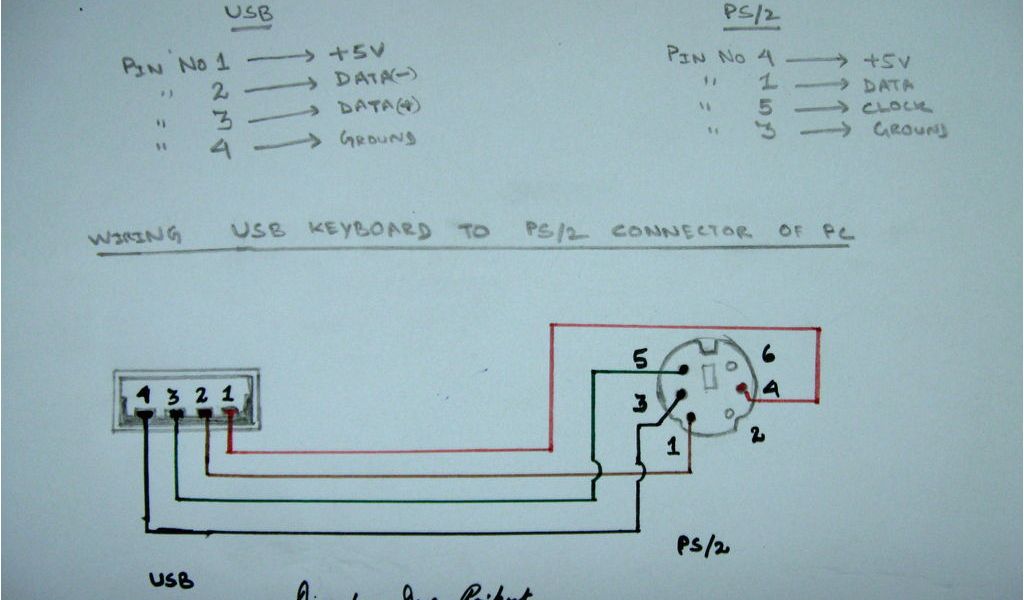 USB
PIN No 1 → +5V
" 2 → DATA(-)
" 3 → DATA(+)
" 4 → GROUND
PS/2
PIN NO 4 → +5V
" 1 → DATA
" 5 → CLOCK
" 3 → GROUND
WIRING USB KEYBOARD TO PS/2 CONNECTOR OF PC
4 3 2 1
5 6
3 4
1 2
PS/2
USB